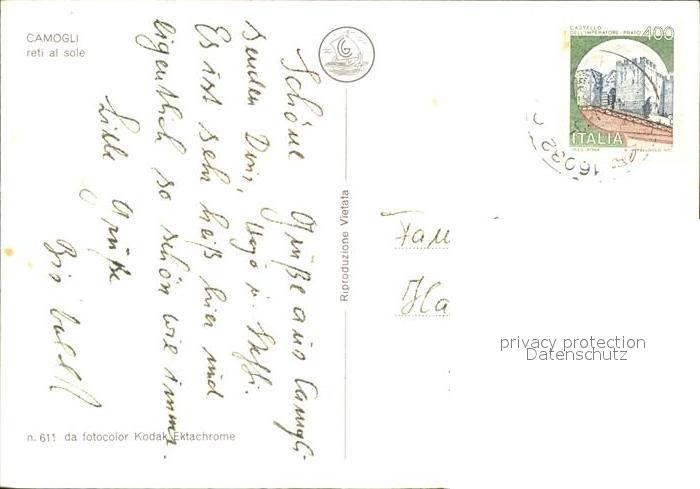 CAMOGLI
reti al sole
CASTELLO
DELL'IMPERATORE - PRATO 400
ITALIA
16032
G
Schöne Grüße aus Camogli
senden Dir, u. Steffi.
Es ist sehr heiß hier und
eigentlich so schön wie immer.
Liebe Grüße
Bis bald
Riproduzione Vietata
Fam
Ha
privacy protection
Datenschutz
n. 611 da fotocolor Kodak Ektachrome